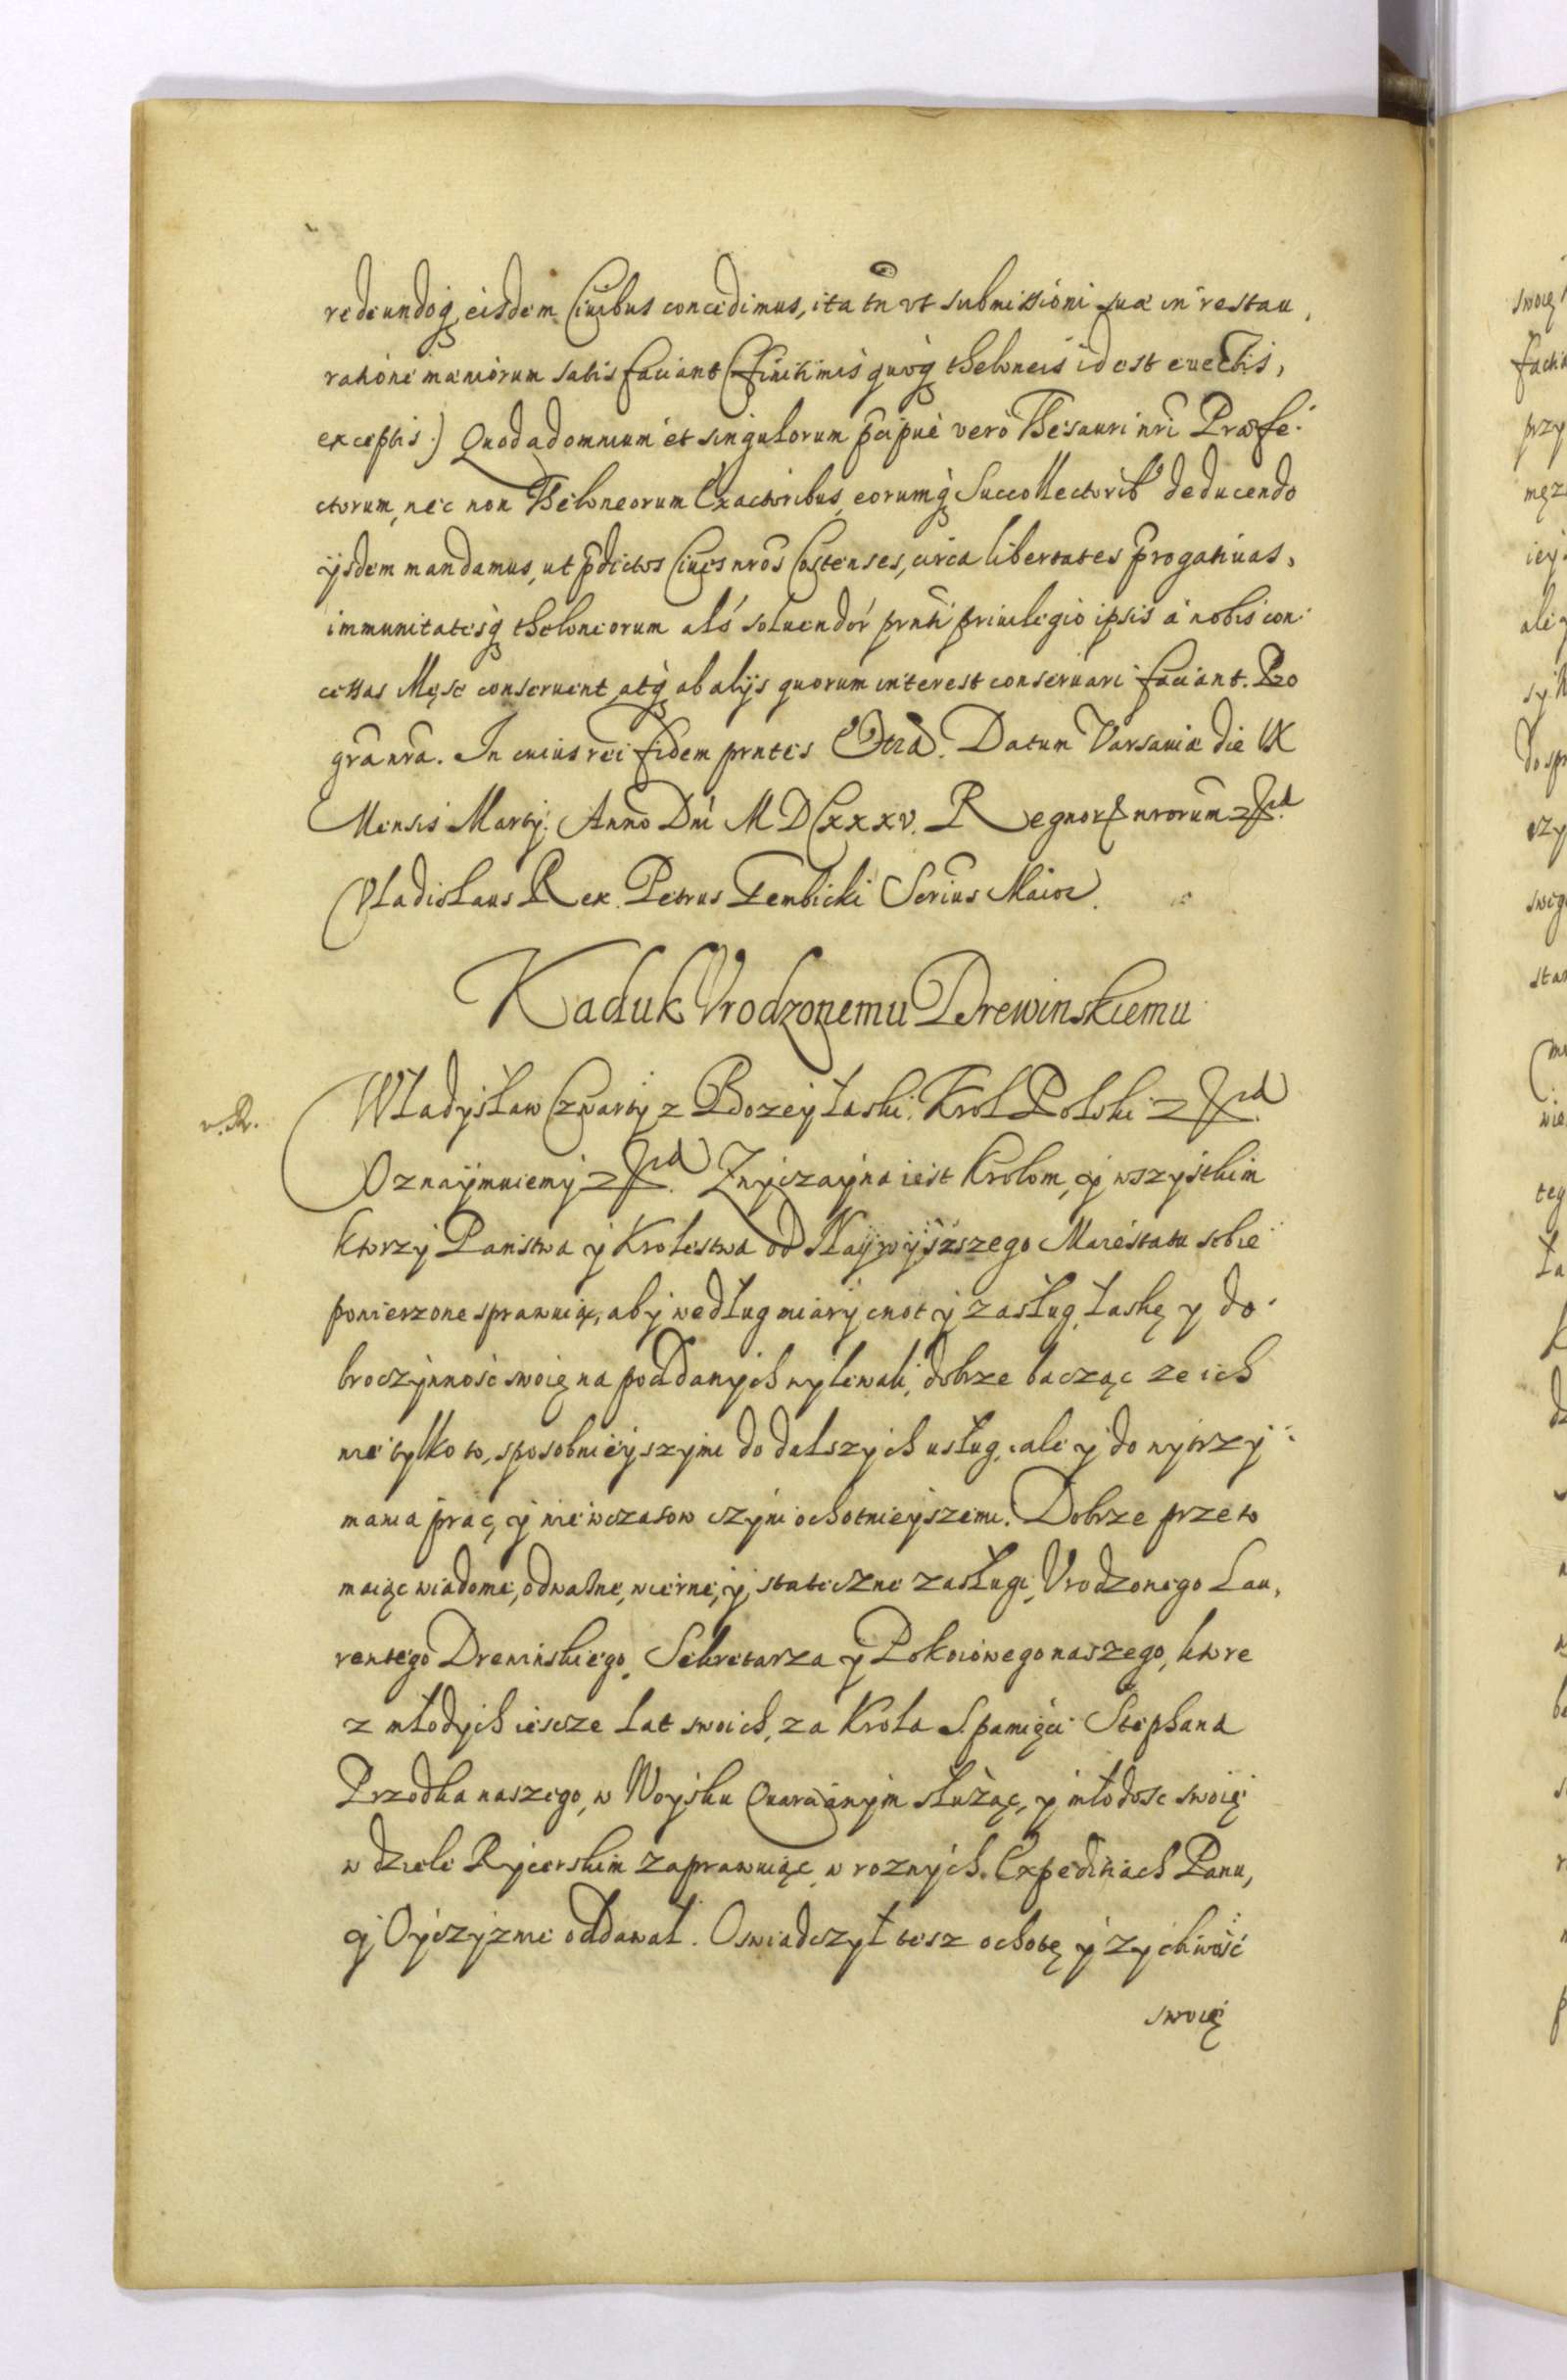 redeundoq̨ eisdem Ciuibus concedimus, ita tn̄ vt submissioni suæ in restau,
ratione mæniorum satis faciant (finitimis quoq̨ theloneis id est evectis,
exceptis.) Quod ad omnium et singulorum pcipuè vero Thesauri nri Præfe-
ctorum, nec non Theloneorum Exactoribus, eorumq̨ Succollectorib9 deducendo
ijsdem mandamus, ut pdictos Ciues nros Costenses, circa libertates progatiuas,
immunitatesq̨ theloneorum als soluendor prnti priuilegio ipsis à nobis con
cessas Męse conseruent, atq̨ ab alijs quorum interest conseruari faciant. Pro
gra nra. In cuius rei fidem prntes Etra. Datum Varsauiæ die IX
Mensis Martij. Anno Dni MDCxxxv. Regnor nrorum &ra
Vladislaus Rex. Petrus Gembicki Scrius Maior.
Kaduk Vrodzonemu Drewinskiemu
v. R.
Władysław Czwarty z Bozey łaski Krol Polski &ra
Oznaÿmuiemÿ &ra. Zwÿczaÿna iest Krolom, ÿ wszÿstkim
ktorzÿ Panstwa ÿ Krolestwa od Naÿwÿszszego Maiestatu sobie
powierzone sprawuią, abÿ według miarÿ cnot ÿ zasług łaskę y do-
broczÿnność swoię na poddanÿch wÿlewali, dobrze bacząc ze ich
nie tylko to, sposobnieÿszÿmi do dalszÿch usług, ale ÿ do wÿtrzÿ
mania prac, ÿ niewczasow czÿni ochotnieÿszemi. Dobrze przeto
maiąc wiadome, odważne, wierne, ÿ stateczne zasługi, Vrodzonego Lau,
rentego Drewinskiego, Sekretarza ÿ Pokoiowego naszego, ktore
z młodÿch iescze lat swoich, za Krola S. pamięci Stephana
Przodka naszego, w Woÿsku Quarcianÿm służąc, ÿ młodosc swoię
w dziele Rÿcerskim zaprawuiąc, w roznÿch Expeditiach Panu,
ÿ Oÿczÿznie oddawał. Oswiadczÿł tesz ochotę ÿ zÿcliwość
swoię